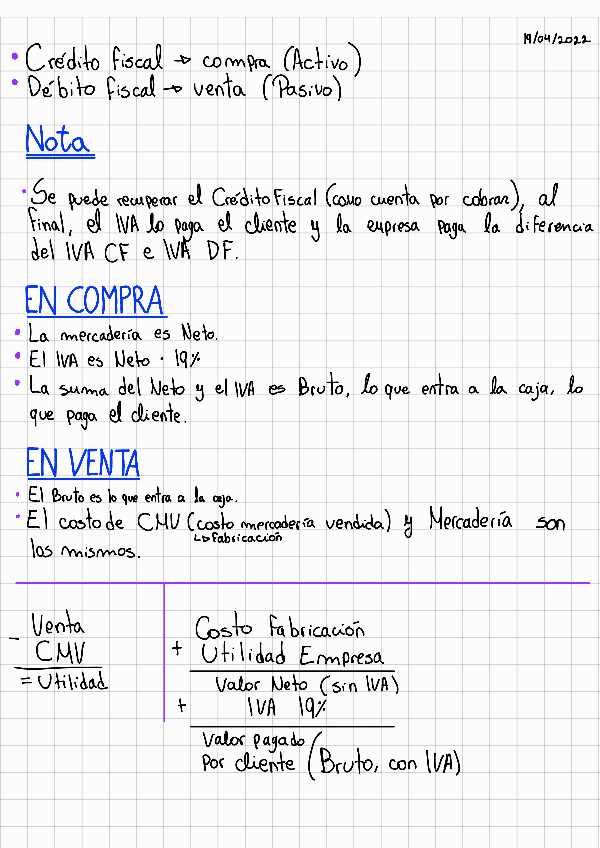 19/04/2022
• Crédito fiscal → compra (Activo)
• Débito fiscal → venta (Pasivo)
Nota
• Se puede recuperar el Crédito Fiscal (como cuenta por cobrar), al
final, el IVA lo paga el cliente y la empresa paga la diferencia
del IVA CF e IVA DF.
EN COMPRA
• La mercadería es Neto.
• El IVA es Neto · 19%
• La suma del Neto y el IVA es Bruto, lo que entra a la caja, lo
que paga el cliente.
EN VENTA
• El Bruto es lo que entra a la caja.
• El costo de CMV (costo mercadería vendida) y Mercadería son
↳ Fabricación
los mismos.
Venta
- CMV
= Utilidad
Costo Fabricación
+ Utilidad Empresa
Valor Neto (sin IVA)
+ IVA 19%
Valor pagado
por cliente (Bruto, con IVA)